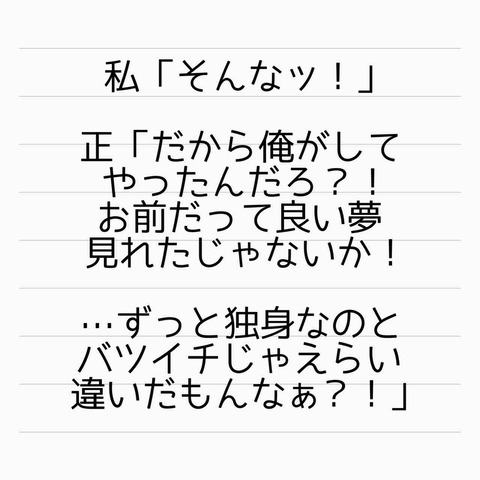 私「そんなッ！」
正「だから俺がして
やったんだろ？！
お前だって良い夢
見れたじゃないか！
…ずっと独身なのと
バツイチじゃえらい
違いだもんなぁ？！」